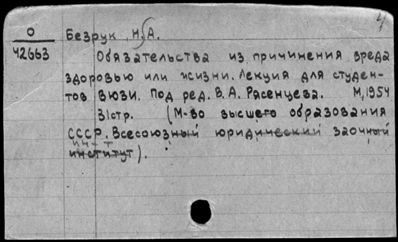 О Безрук, Н.А.
42663
Обязательства из причинения вреда
здоровью или жизни. Лекция для студен-
тов ВЮЗИ. Под ред. В.А. Рясенцева. М, 1954
31стр. (М-во высшего образования
СССР. Всесоюзный юридический заочный
ин-т
институт).